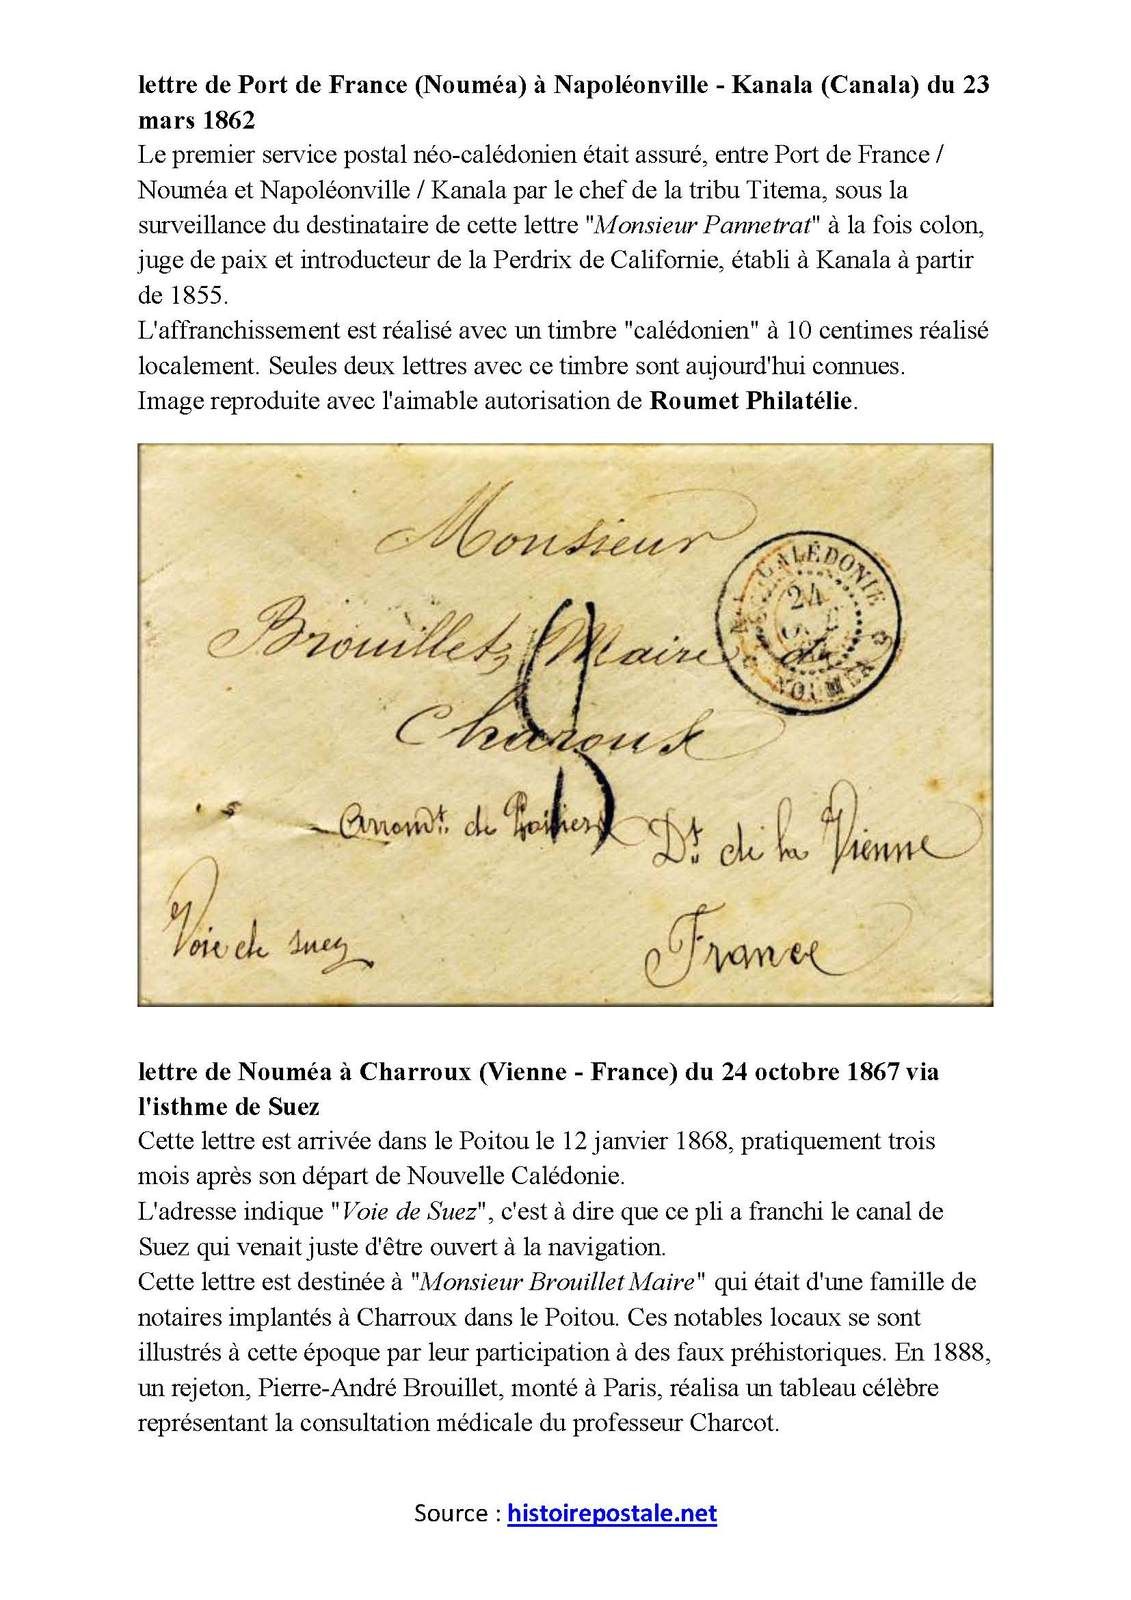 lettre de Port de France (Nouméa) à Napoléonville - Kanala (Canala) du 23
mars 1862
Le premier service postal néo-calédonien était assuré, entre Port de France /
Nouméa et Napoléonville / Kanala par le chef de la tribu Titema, sous la
surveillance du destinataire de cette lettre "Monsieur Pannetrat" à la fois colon,
juge de paix et introducteur de la Perdrix de Californie, établi à Kanala à partir
de 1855.
L'affranchissement est réalisé avec un timbre "calédonien" à 10 centimes réalisé
localement. Seules deux lettres avec ce timbre sont aujourd'hui connues.
Image reproduite avec l'aimable autorisation de Roumet Philatélie.
Monsieur
Brouillet, Maire de
Charoux
Arrondt. de Poitiers Dt. de la Vienne
Voie de Suez
France
CALÉDONIE
24
NOUMEA
lettre de Nouméa à Charroux (Vienne - France) du 24 octobre 1867 via
l'isthme de Suez
Cette lettre est arrivée dans le Poitou le 12 janvier 1868, pratiquement trois
mois après son départ de Nouvelle Calédonie.
L'adresse indique "Voie de Suez", c'est à dire que ce pli a franchi le canal de
Suez qui venait juste d'être ouvert à la navigation.
Cette lettre est destinée à "Monsieur Brouillet Maire" qui était d'une famille de
notaires implantés à Charroux dans le Poitou. Ces notables locaux se sont
illustrés à cette époque par leur participation à des faux préhistoriques. En 1888,
un rejeton, Pierre-André Brouillet, monté à Paris, réalisa un tableau célèbre
représentant la consultation médicale du professeur Charcot.
Source : histoirepostale.net